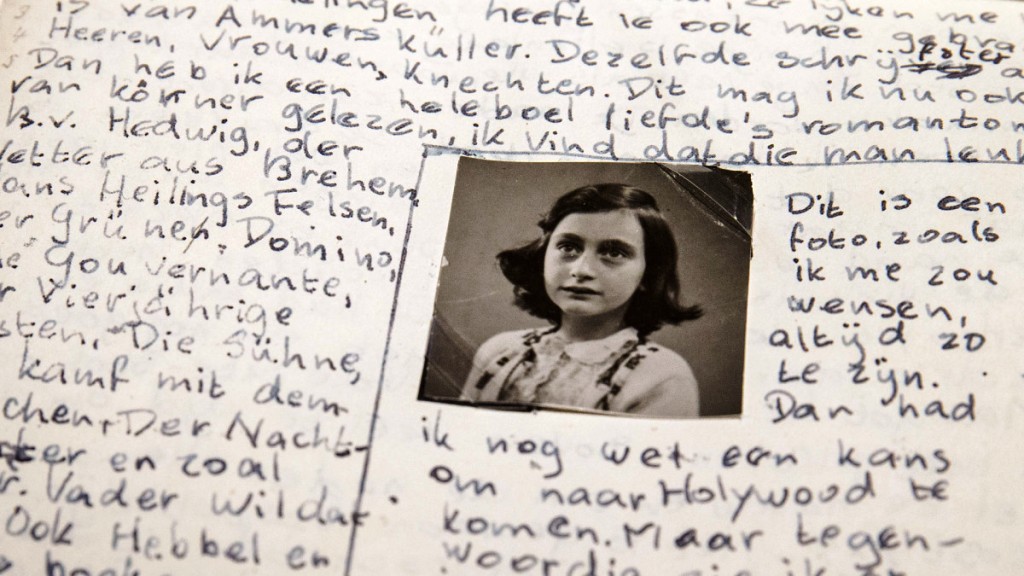 is van Ammers Küller. Dezelfde
Heeren, Vrouwen, Knechten. Dit mag ik nu ook
Dan heb ik een heleboel liefde's romanton
van körner gelezen, ik vind dat die man
B.v. Hedwig, der
Vetter aus Brehem,
Hans Heilings Felsen,
Grünen, Domino,
Gouvernante,
Vierjährige
Die Sühne,
kamf mit dem
chen, Der Nacht-
en zoal
Vader wil dat
Ook Hebbel en
Dit is een
foto, zoals
ik me zou
wensen,
altijd zo
te zijn.
Dan had
ik nog wet een kans
om naar Holywood te
komen. Maar tegen-
woordig